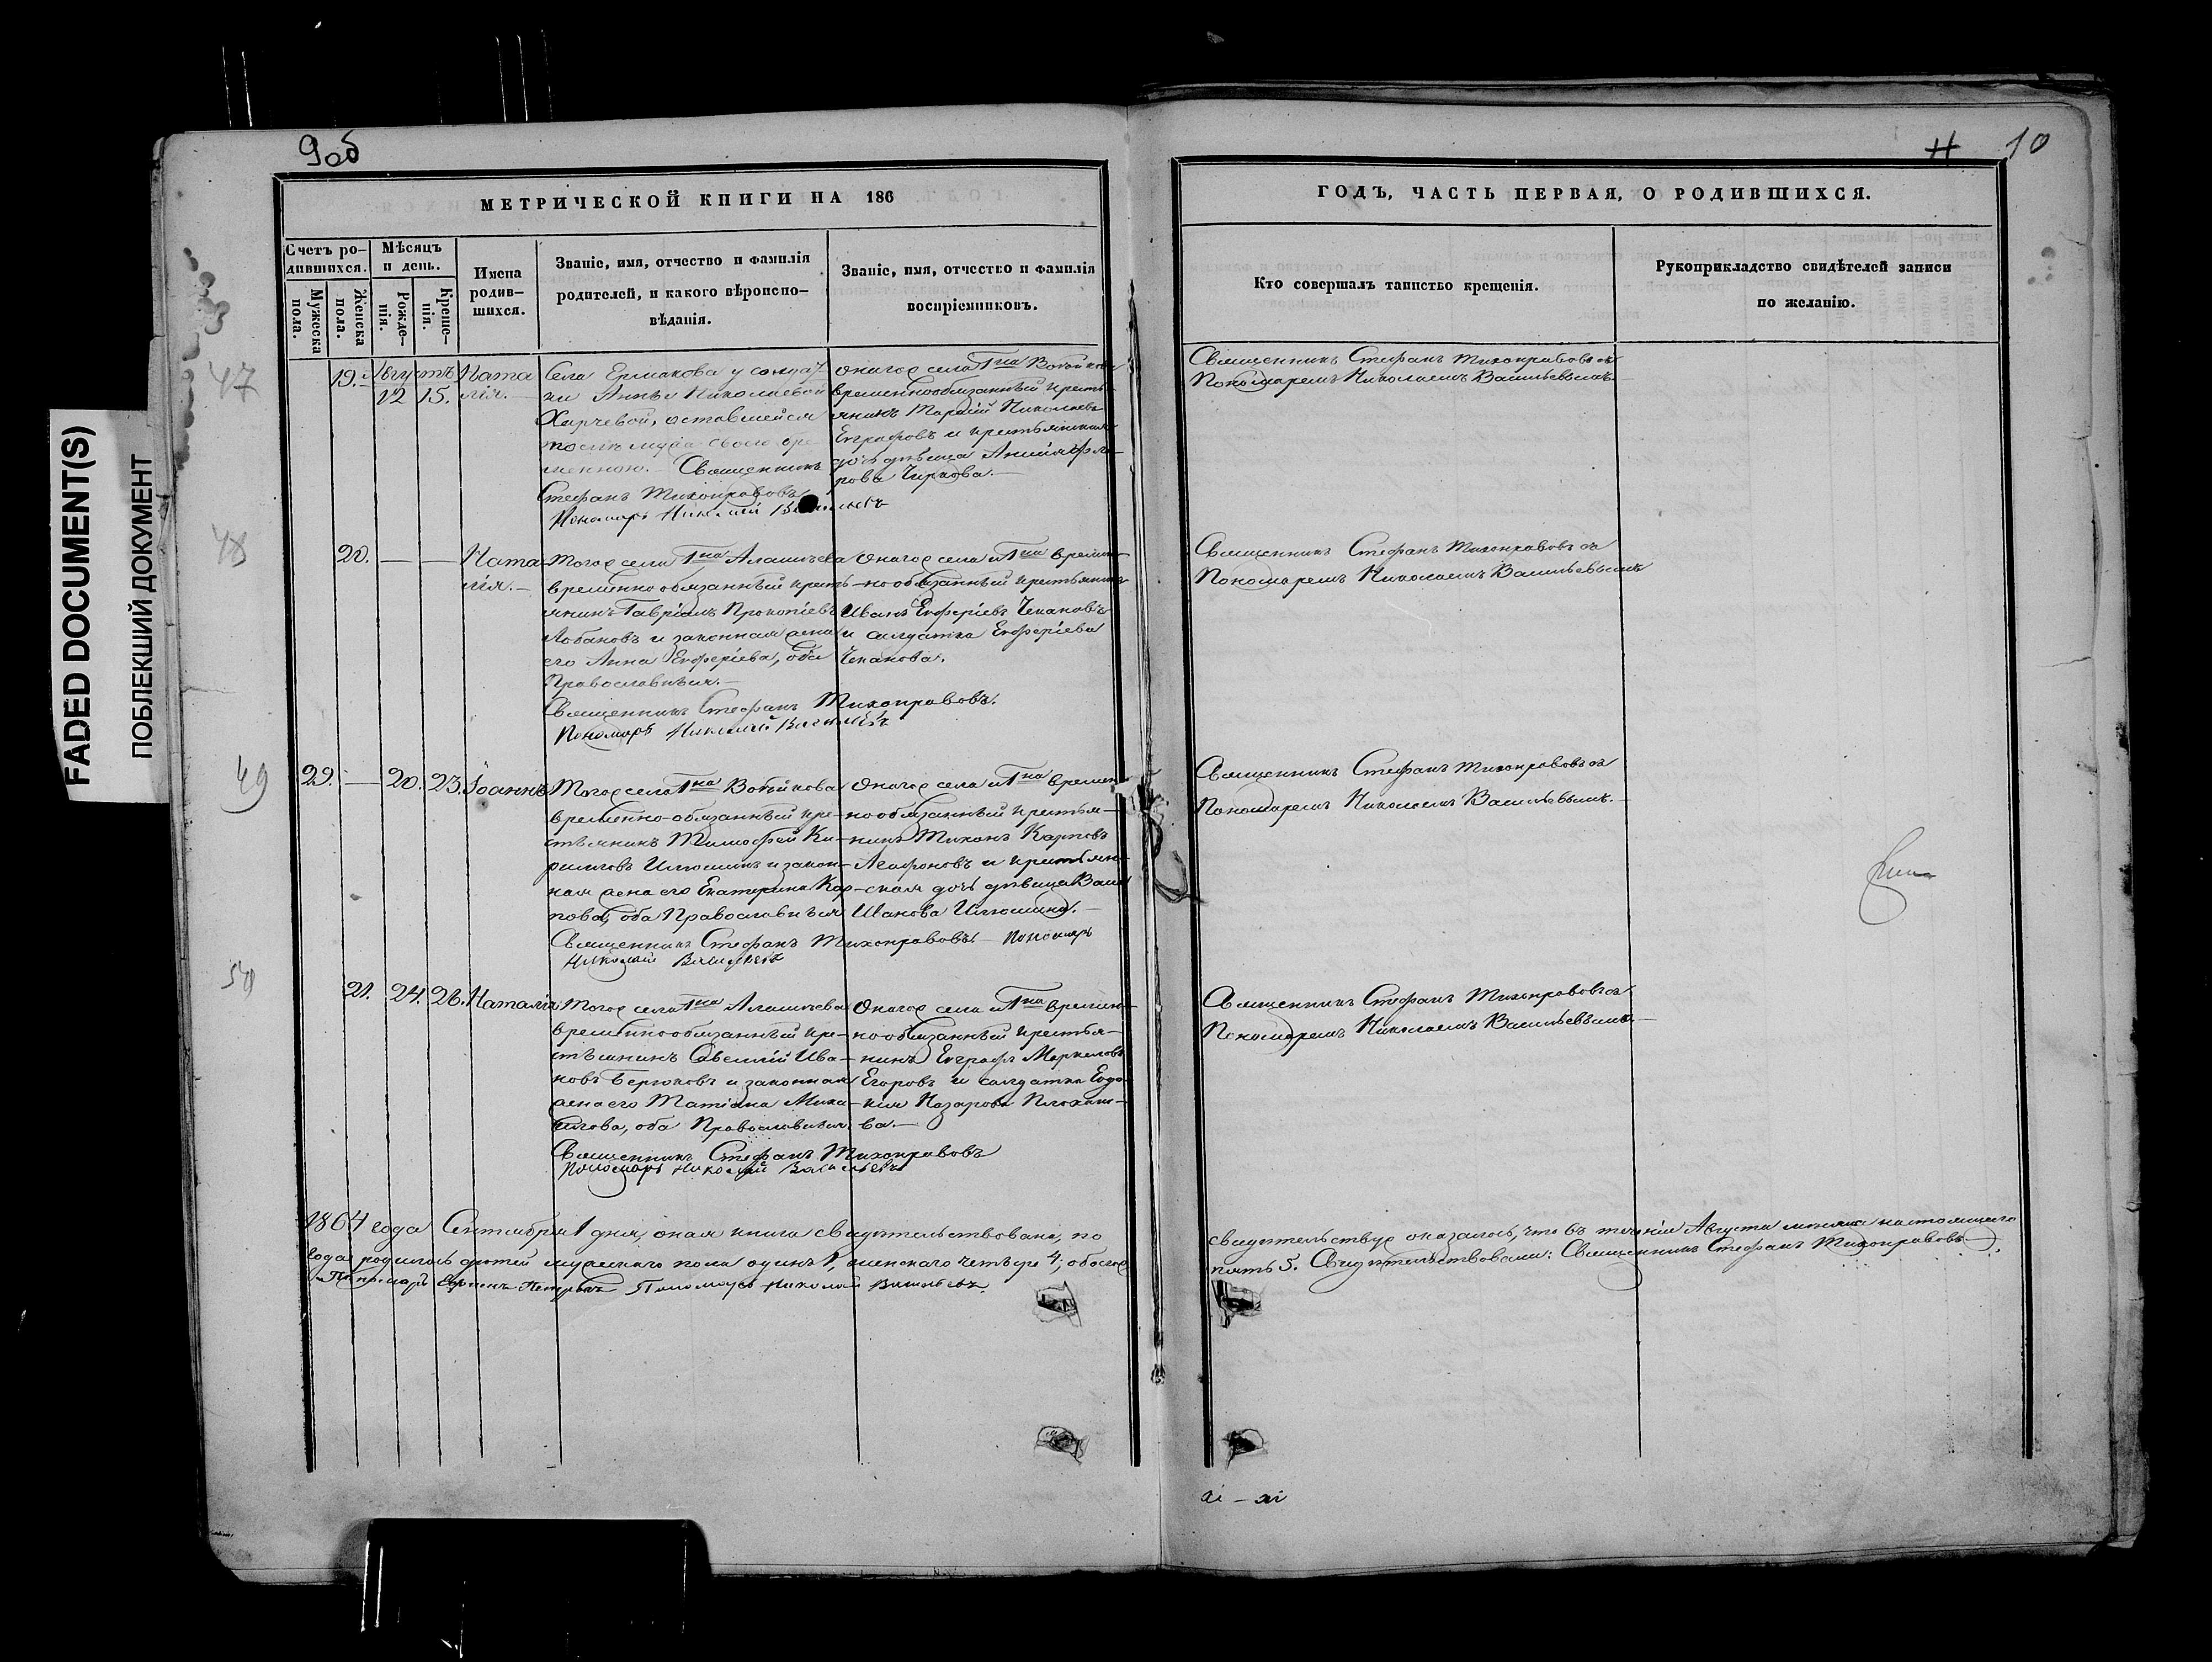 9об
МЕТРИЧЕСКОЙ КНИГИ НА 186
Счетъ ро-
дившихся.
Мужеска
пола.
Женска
пола.
Мѣсяцъ
и день.
Рожде-
нія.
Креще-
нія.
Имена
родив-
шихся.
Званіе, имя, отчество и фамилія
родителей, и какого вѣроиспо-
вѣданія.
Званіе, имя, отчество и фамилія
воспріемниковъ.
47
19. Августъ
12 15.
Ната
лія.
Села Ермакова у солдат
ки Анны Николаевой
Харчевой, оставшейся
послѣ мужа своего бре-
менною. Священникъ
Стефанъ Тихонравовъ
Пономарь Николай
онаго села Гна
временнообязанный кресть-
янинъ Николаевъ
Евграфовъ и крестьянская
дочь дѣвица
Чиркова.
48
20. — —
Ната-
лія.
Того села Гна Алашеева
временно обязанный кресть-
янинъ Гавріилъ Прокопіевъ
Лобановъ и законная жена
его Анна Елферіева, оба
Православныя.
Священникъ Стефанъ Тихонравовъ.
Пономарь Николай Васильевъ
Онаго села и Гна времен-
но обязанный крестьянинъ
Иванъ Елферіевъ Чекановъ
и салдатка Елферіева
Чеканова.
49
29. — 20. 23. Іоаннъ
Того села Гна Войкова
временно-обязанный кре-
стьянинъ Тимофей Ки-
риловъ Илюшинъ и закон-
ная жена его Екатерина Кар-
пова, оба Православныя
Священникъ Стефанъ Тихонравовъ. Пономарь
Николай Васильевъ
Онаго села и Гна времен-
но обязанный крестья-
нинъ Тихонъ Карповъ
Агафоновъ и крестьян-
ская дочь дѣвица
Иванова Илюшина.
50
21. 24. 26. Наталія
Того села Гна Алашеева
временнообязанный кре-
стьянинъ Савелій Ива-
новъ Бирюковъ и законная
жена его Татіана Миха-
илова, оба Православныя.
Священникъ Стефанъ Тихонравовъ
Пономарь Николай Васильевъ
Онаго села и Гна времен-
но обязанный крестья-
нинъ Евграфъ Маркеловъ
Егоровъ и салдатка Евдо-
кія Назарова
ва.
1864 года Сентября 1 дня, оная книга свидѣтельствована, по
года родилось дѣтей мужескаго пола одинъ 1, женскаго четыре 4; обоего
Пономарь Николай Васильевъ.
10
ГОДЪ, ЧАСТЬ ПЕРВАЯ, О РОДИВШИХСЯ.
Кто совершалъ таинство крещенія.
Рукоприкладство свидѣтелей записи
по желанію.
Священникъ Стефанъ Тихонравовъ съ
Пономаремъ Николаемъ Васильевымъ.
Священникъ Стефанъ Тихонравовъ съ
Пономаремъ Николаемъ Васильевымъ
Священникъ Стефанъ Тихонравовъ съ
Пономаремъ Николаемъ Васильевымъ.
Священникъ Стефанъ Тихонравовъ съ
Пономаремъ Николаемъ Васильевымъ.
свидѣтельству оказалось, что въ теченіи Августа мѣсяца настоящаго
пять 5. Свидѣтельствовали: Священникъ Стефанъ Тихонравовъ
FADED DOCUMENT(S)
ПОБЛЕКШИЙ ДОКУМЕНТ